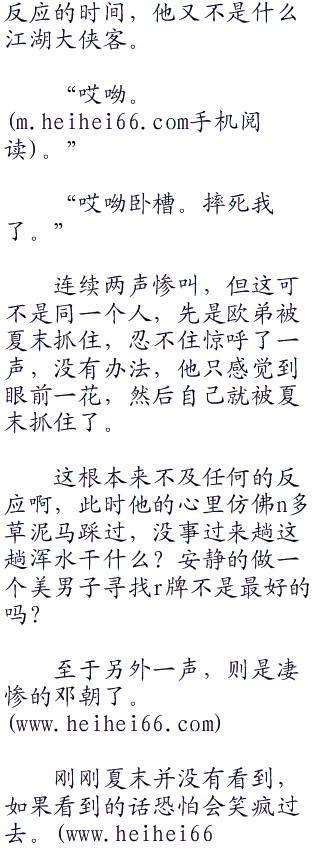 反应的时间，他又不是什么
江湖大侠客。
“哎呦。
(m.heihei66.com手机阅
读)。”
“哎呦卧槽。摔死我
了。”
连续两声惨叫，但这可
不是同一个人，先是欧弟被
夏末抓住，忍不住惊呼了一
声，没有办法，他只感觉到
眼前一花，然后自己就被夏
末抓住了。
这根本来不及任何的反
应啊，此时他的心里仿佛n多
草泥马踩过，没事过来趟这
趟浑水干什么？安静的做一
个美男子寻找r牌不是最好的
吗？
至于另外一声，则是凄
惨的邓朝了。
(www.heihei66.com)
刚刚夏末并没有看到，
如果看到的话恐怕会笑疯过
去。(www.heihei66